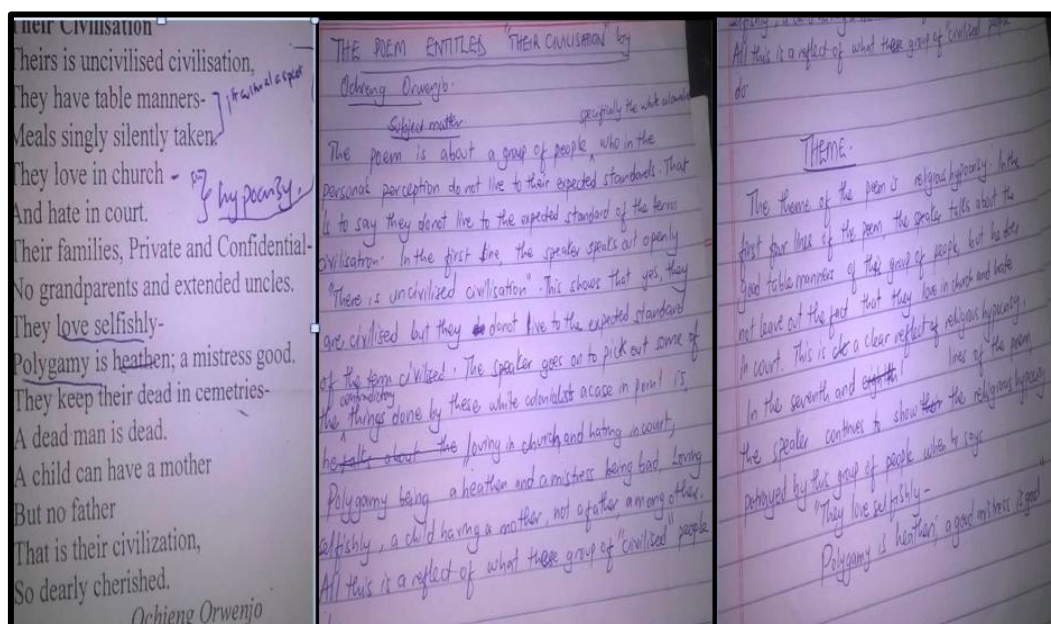 Their Civilisation
Theirs is uncivilised civilisation,
They have table manners-
Meals singly silently taken.
They love in church -
And hate in court.
hypocrisy.
Their families, Private and Confidential-
No grandparents and extended uncles.
They love selfishly-
Polygamy is heathen; a mistress good.
They keep their dead in cemetries-
A dead man is dead.
A child can have a mother
But no father
That is their civilization,
So dearly cherished.
Ochieng Orwenjo
THE POEM ENTITLED "THEIR CIVILISATION" by
Ochieng Orwenjo.
Subject matter
specifically the white colonialist
The poem is about a group of people who in the
personal perception do not live to their expected standards. That
is to say they do not live to the expected standard of the term
civilisation. In the first line, the speaker speaks out openly
"There is uncivilized civilisation". This shows that yes, they
are civilised but they do not live to the expected standard
of the term civilised. The speaker goes on to pick out some of
contradictory
the things done by these white colonialists a case in point is
he talks about the loving in church and hating in court,
Polygamy being a heathen and a mistress being bad, Loving
selfishly, a child having a mother, not a father, among other.
All this is a reflect of what these group of "civilized" people
All this is a reflect of what these group of "civilized people
do.
THEME.
The theme of the poem is religious hypocrisy. In the
first four lines of the poem, the speaker talks about the
good table manners of this group of people, but he does
not leave out the fact that they love in church and hate
in court. This is a clear reflect of religious hypocrisy.
In the seventh and eighth lines of the poem,
the speaker continues to show the religious hypocrisy
portrayed by this group of people when he says
"They love selfishly-
Polygamy is heathen, a good mistress is good"